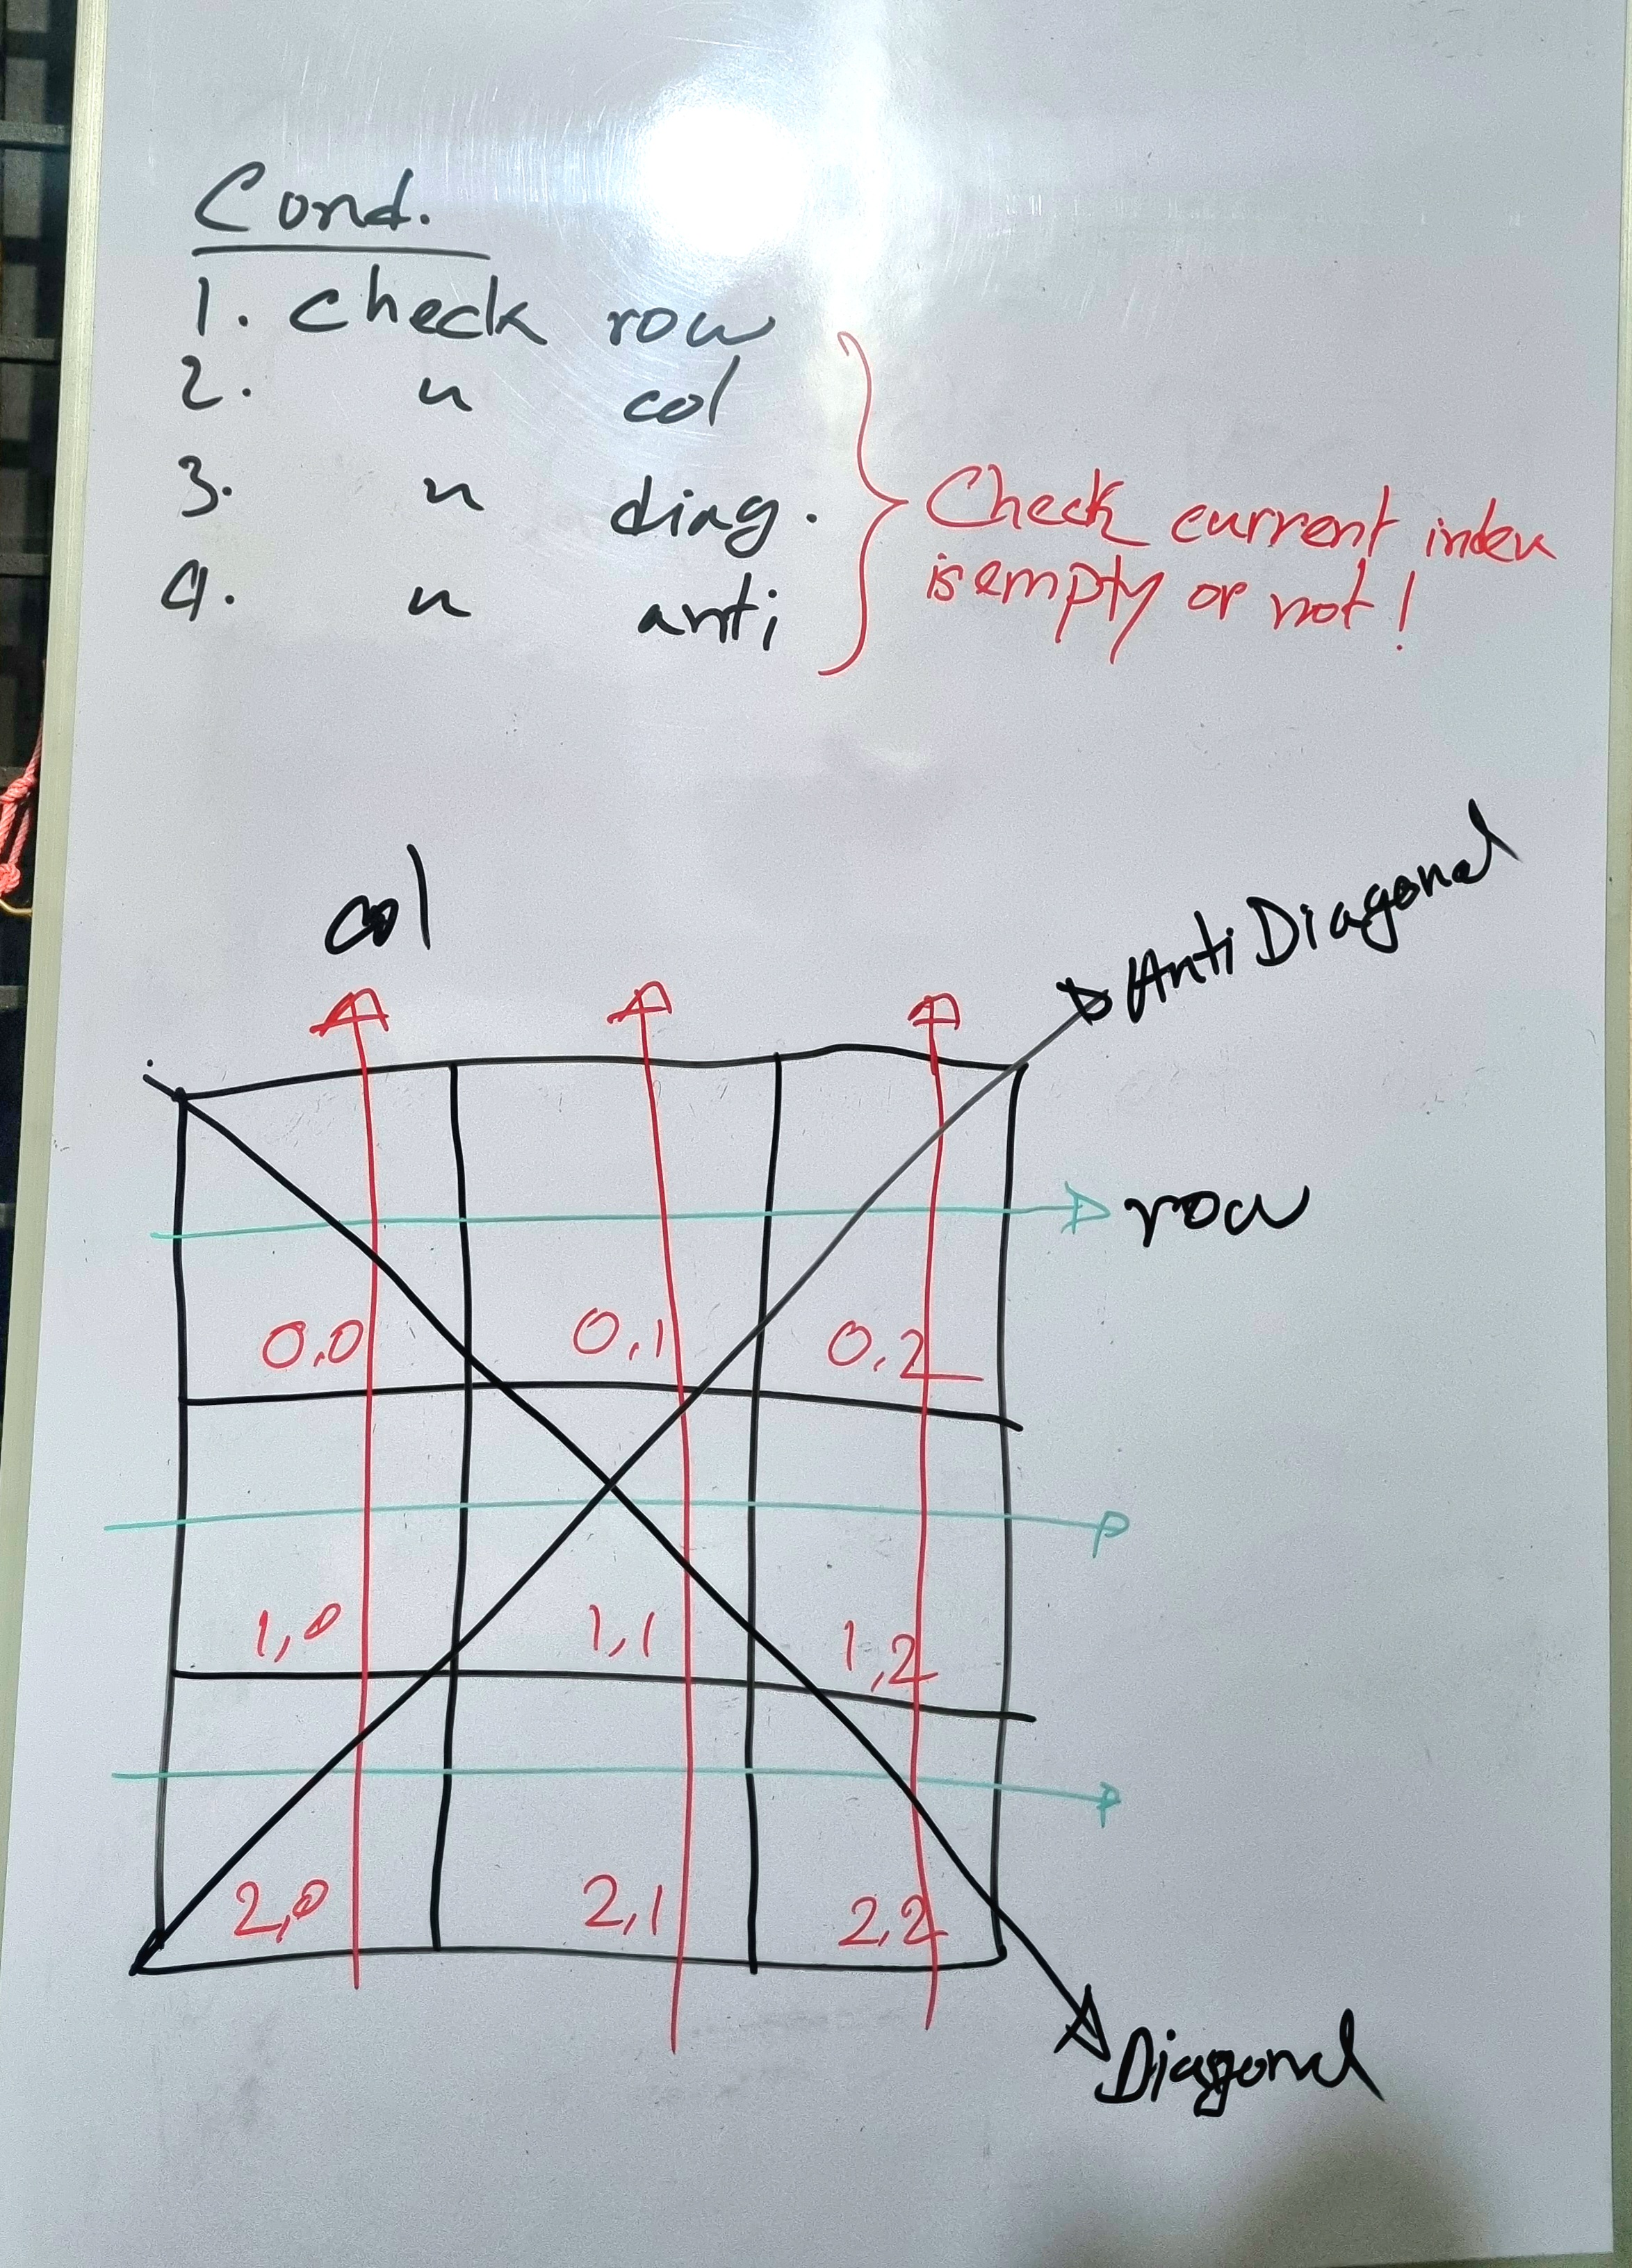 Cond.
1. check row
2. " col
3. " diag.
4. " anti
Check current index
is empty or not!
col
Anti Diagonal
row
0,0 0,1 0,2
1,0 1,1 1,2
2,0 2,1 2,2
Diagonal